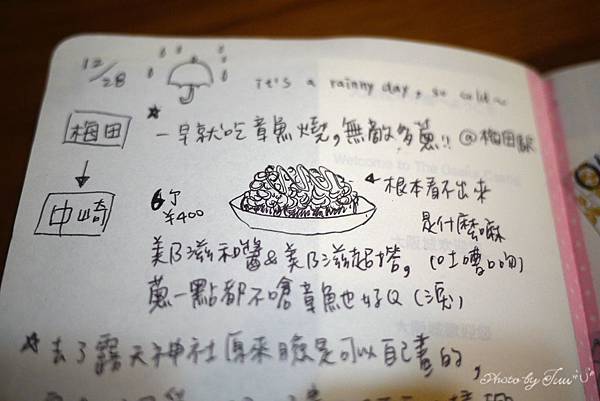 12/28
it's a rainny day, so cold~
梅田
一早就吃章魚燒,無敵多蔥!! @梅田駅
中崎
6個 ¥400
根本看不出來
是什麼嘛
(吐嘈口吻)
美乃滋和醬&美乃滋起士,
蔥一點都不嗆章魚也好Q(淚)
去了露天神社原來臉是可以自己畫的,
Photo by